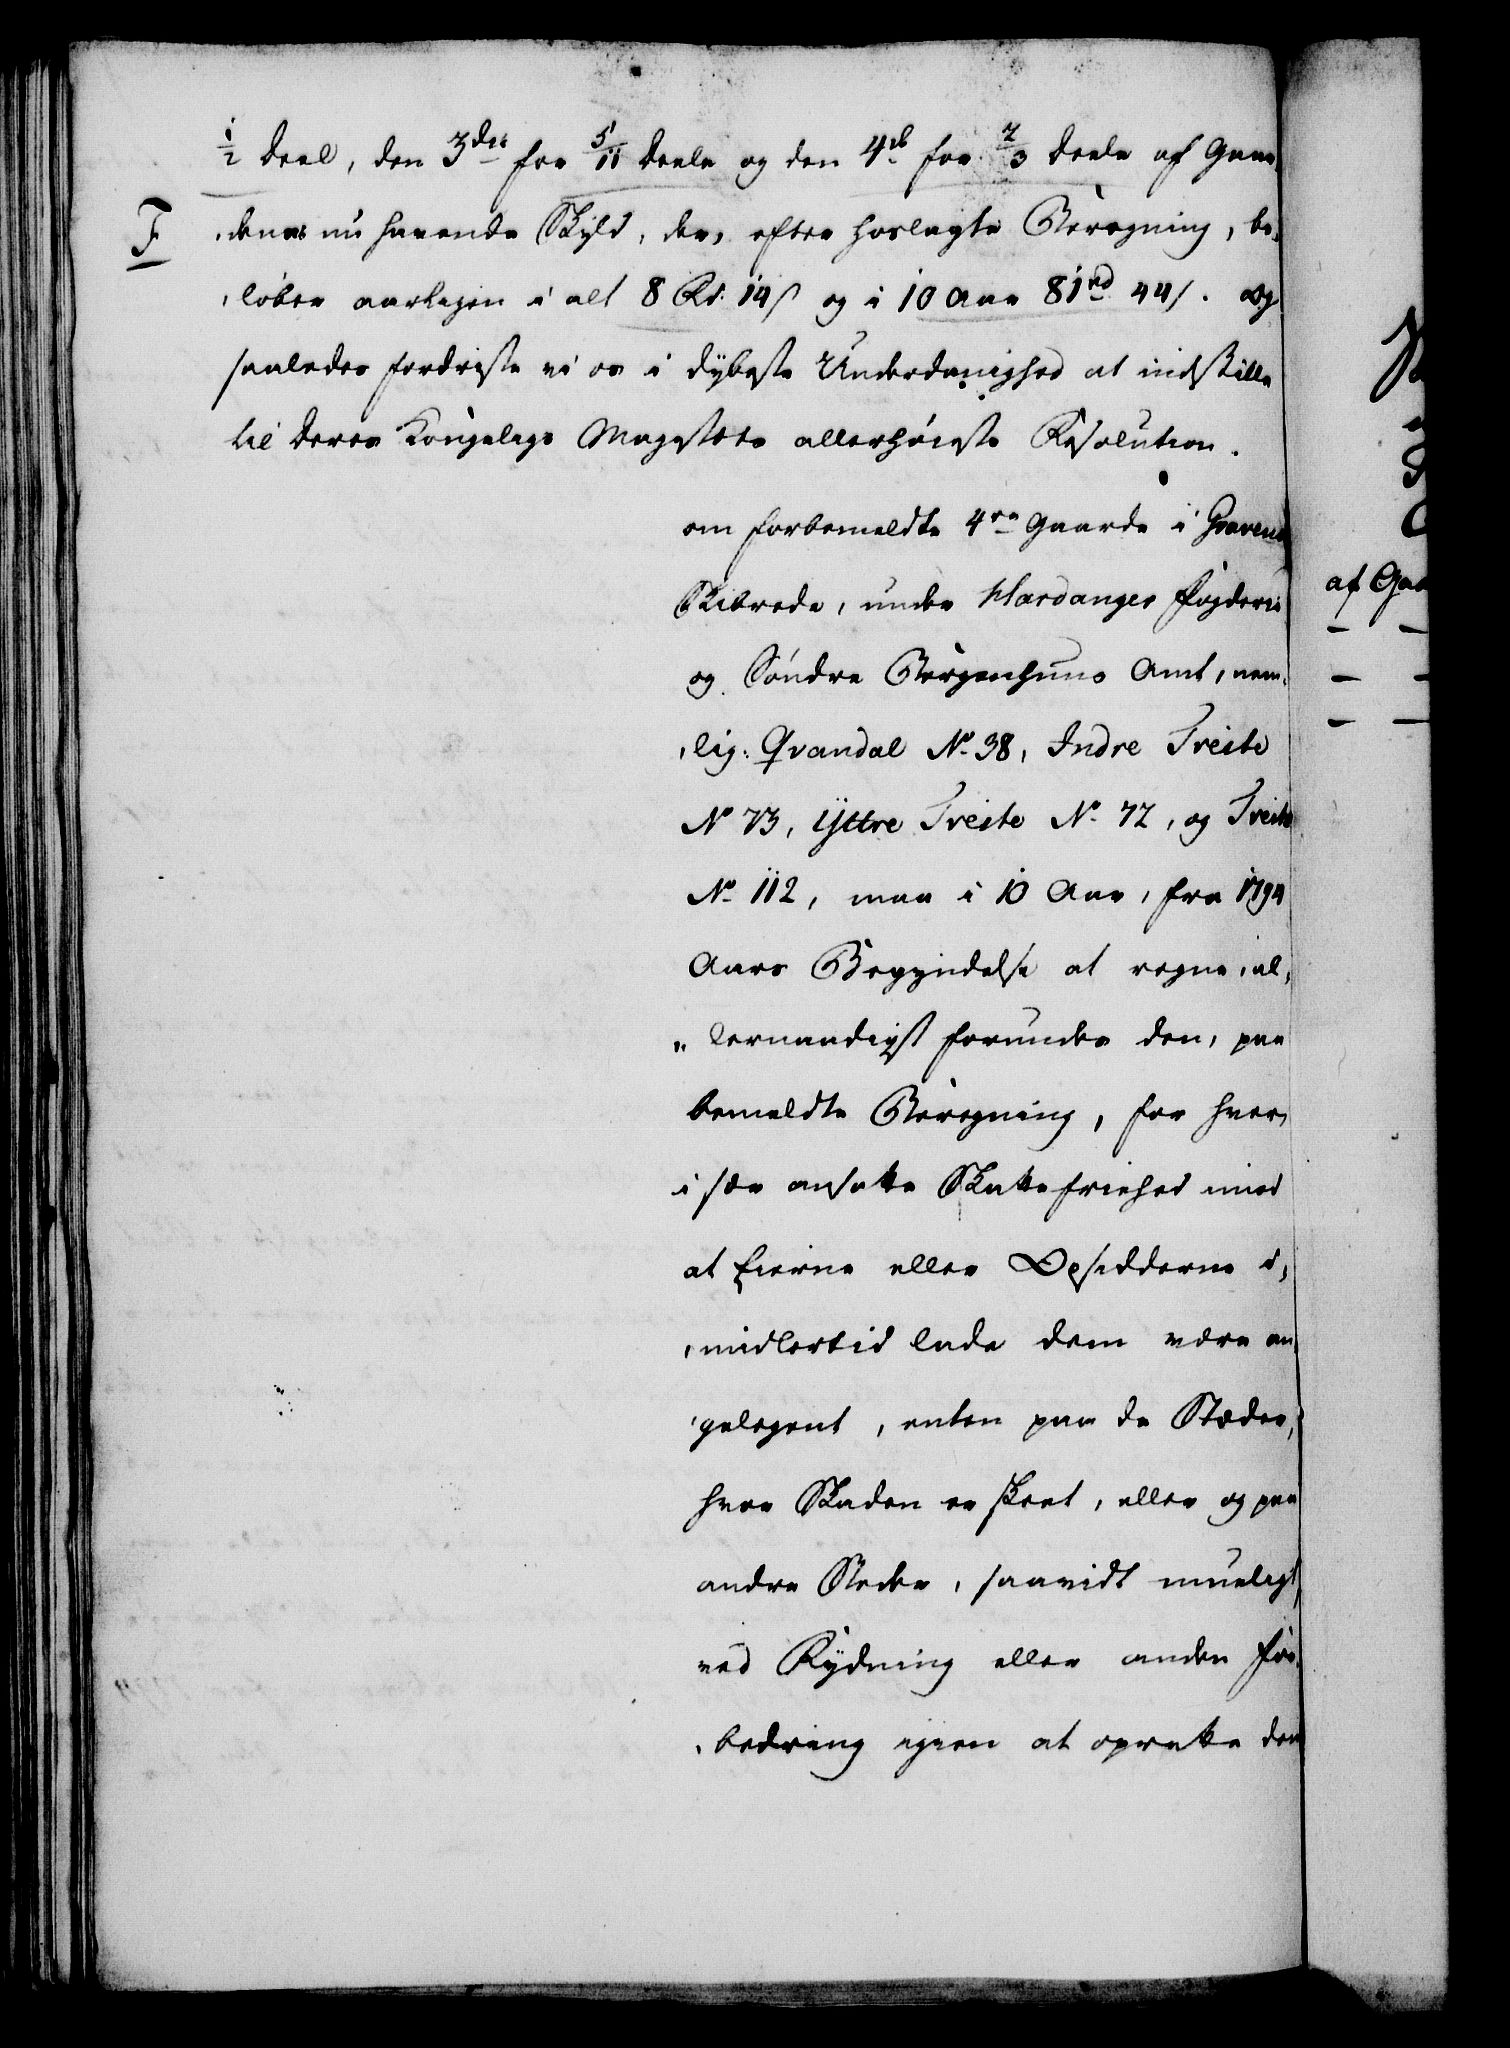 1/2 Deel, den 3die for 5/11 Deele og den 4de for 2/3 Deele af Gaar,
F
,denes nu havende Skyld, der, efter hoslagte Beregning, be,
,løber aarligen i alt 8 Rd. 14 s og i 10 Aar 81 rd 44 s. og
saaledes fordriste vi os i dybeste Underdanighed at indstille
til Deres Kongelige Majestets allerhøieste Resolution.
om forbemeldte 4re Gaarde i Gravens
Skibrede, under Hardanger Fogderie
og Søndre Bergenhuus Amt, nem,
,lig: Qvandal No 38, Indre Treite
No 73, Yttre Treite No 72, og Treite
No 112, maa i 10 Aar, fra 1794
Aars Begyndelse at regne, al,
"lernaadigst forundes den, paa
bemeldte Beregning, for hver
i sær ansatte Skattefriehed imod
at Eierne eller Opsidderne i,
,midlertid lade dem være an,
,gelegent, enten paa de Stæder,
hvor Skaden er skeet, eller og paa
andre Steder, saavidt mueligt,
ved Rydning eller anden For,
,bedring igien at oprette den
af Gaa